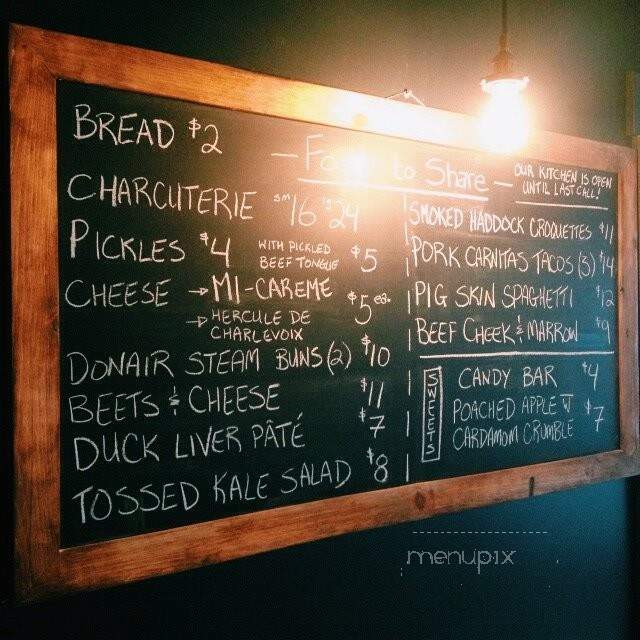 — Food to Share —
OUR KITCHEN IS OPEN
UNTIL LAST CALL!
BREAD $2
CHARCUTERIE sm 16 $24
PICKLES $4 WITH PICKLED
BEEF TONGUE $5
CHEESE → MI-CAREME $5 ea.
→ HERCULE DE
CHARLEVOIX
DONAIR STEAM BUNS (2) $10
BEETS & CHEESE $11
DUCK LIVER PÂTÉ $7
TOSSED KALE SALAD $8
SMOKED HADDOCK CROQUETTES $11
PORK CARNITAS TACOS (3) $14
PIG SKIN SPAGHETTI $12
BEEF CHEEK & MARROW $9
SWEETS
CANDY BAR $4
POACHED APPLE W
CARDAMOM CRUMBLE $7
menupix